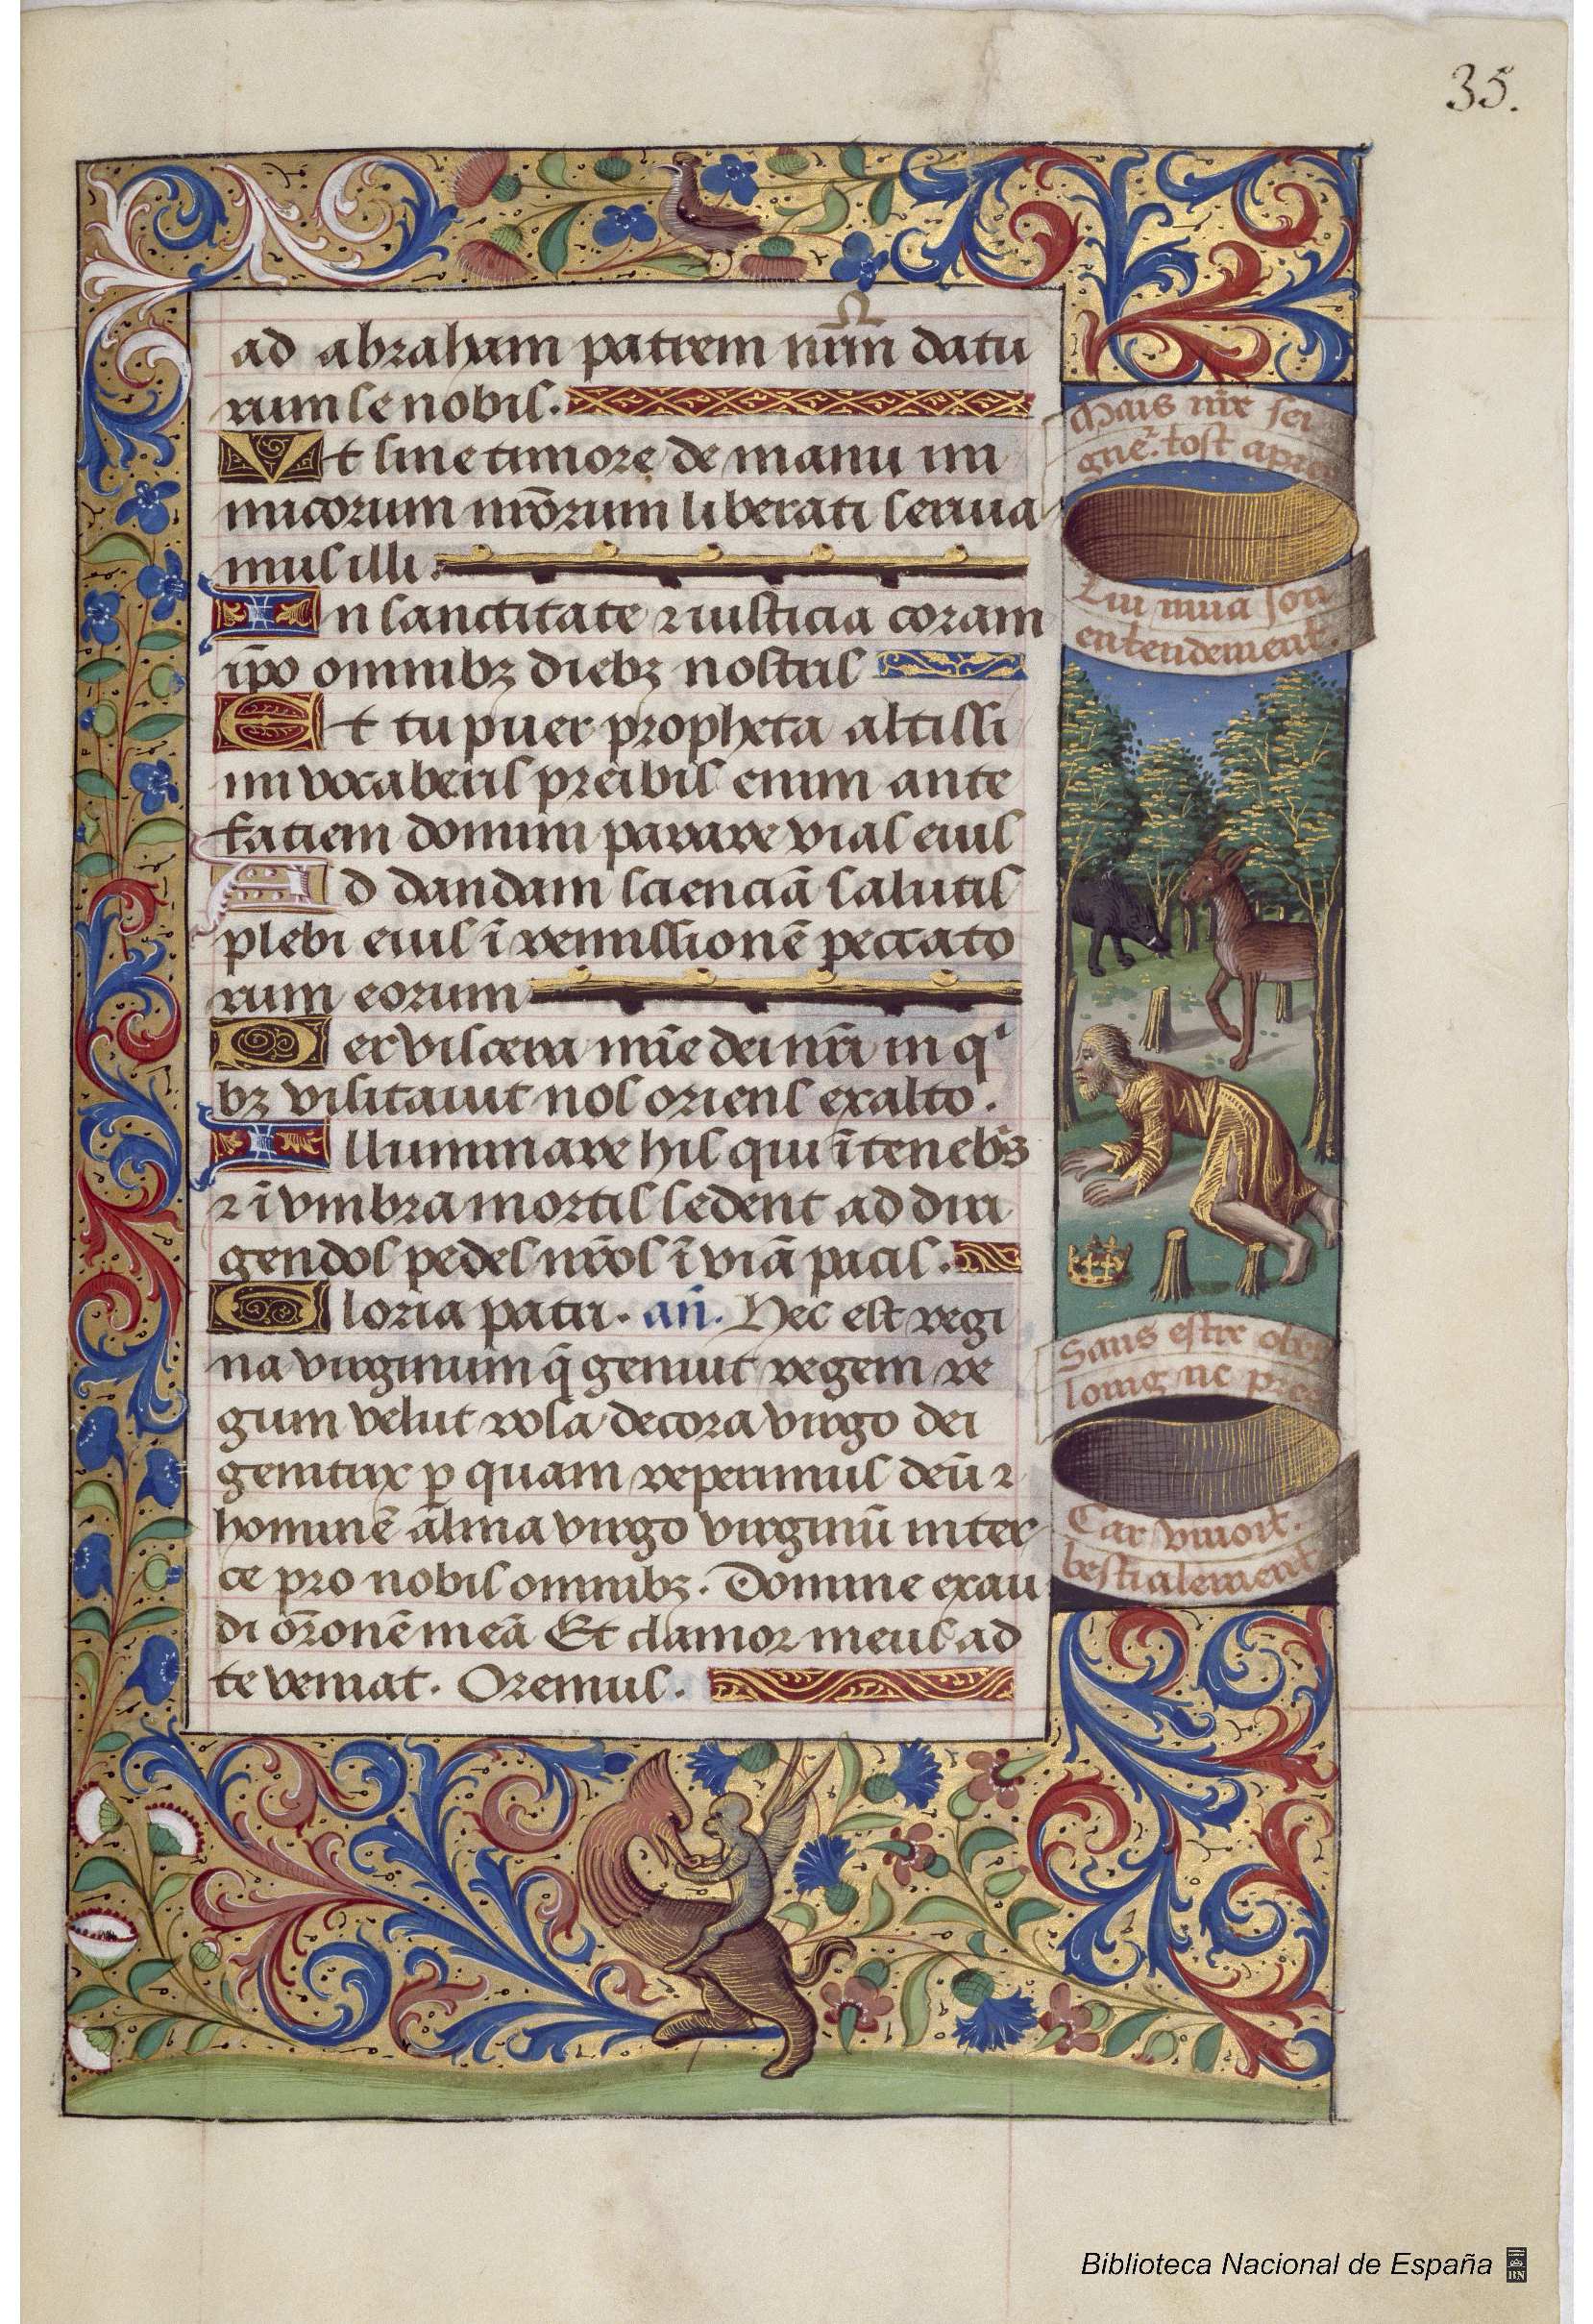 35.
ad abraham patrem nr̄m datu
rum se nobis.
Vt sine timore de manu ini
micorum nr̄orum liberati serua
mus illi.
In sanctitate ⁊ iusticia coram
ip̄o omnibꝫ diebꝫ nostris
Et tu puer propheta altissi
mi vocaberis preibis enim ante
faciem domini parare vias eius
Ad dandam scienciā salutis
plebi eius ī remissionē peccato
rum eorum
Per viscera mīe dei nr̄i in qⁱ
bꝫ visitauit nos oriens exalto.
Illuminare his qui ī tenebr̄s
⁊ ī vmbra mortis sedent ad diri
gendos pedes nr̄os ī viā pacis.
Gloria patri. añ. Hec est regi
na virginum q̄ genuit regem re
gum velut rosa decora virgo dei
genitrix ꝑ quam reperimus deū ⁊
hominē alma virgo virginū inter
ce pro nobis omnibꝫ. Domine exau
di or̄onē meā Et clamor meus ad
te veniat. Oremus.
Mais nr̄e sei
gnẽ. tost apres
Lui mua son
entendement.
Sans estre
loing ne pres
Car viuoit.
bestialement
Biblioteca Nacional de España
BN